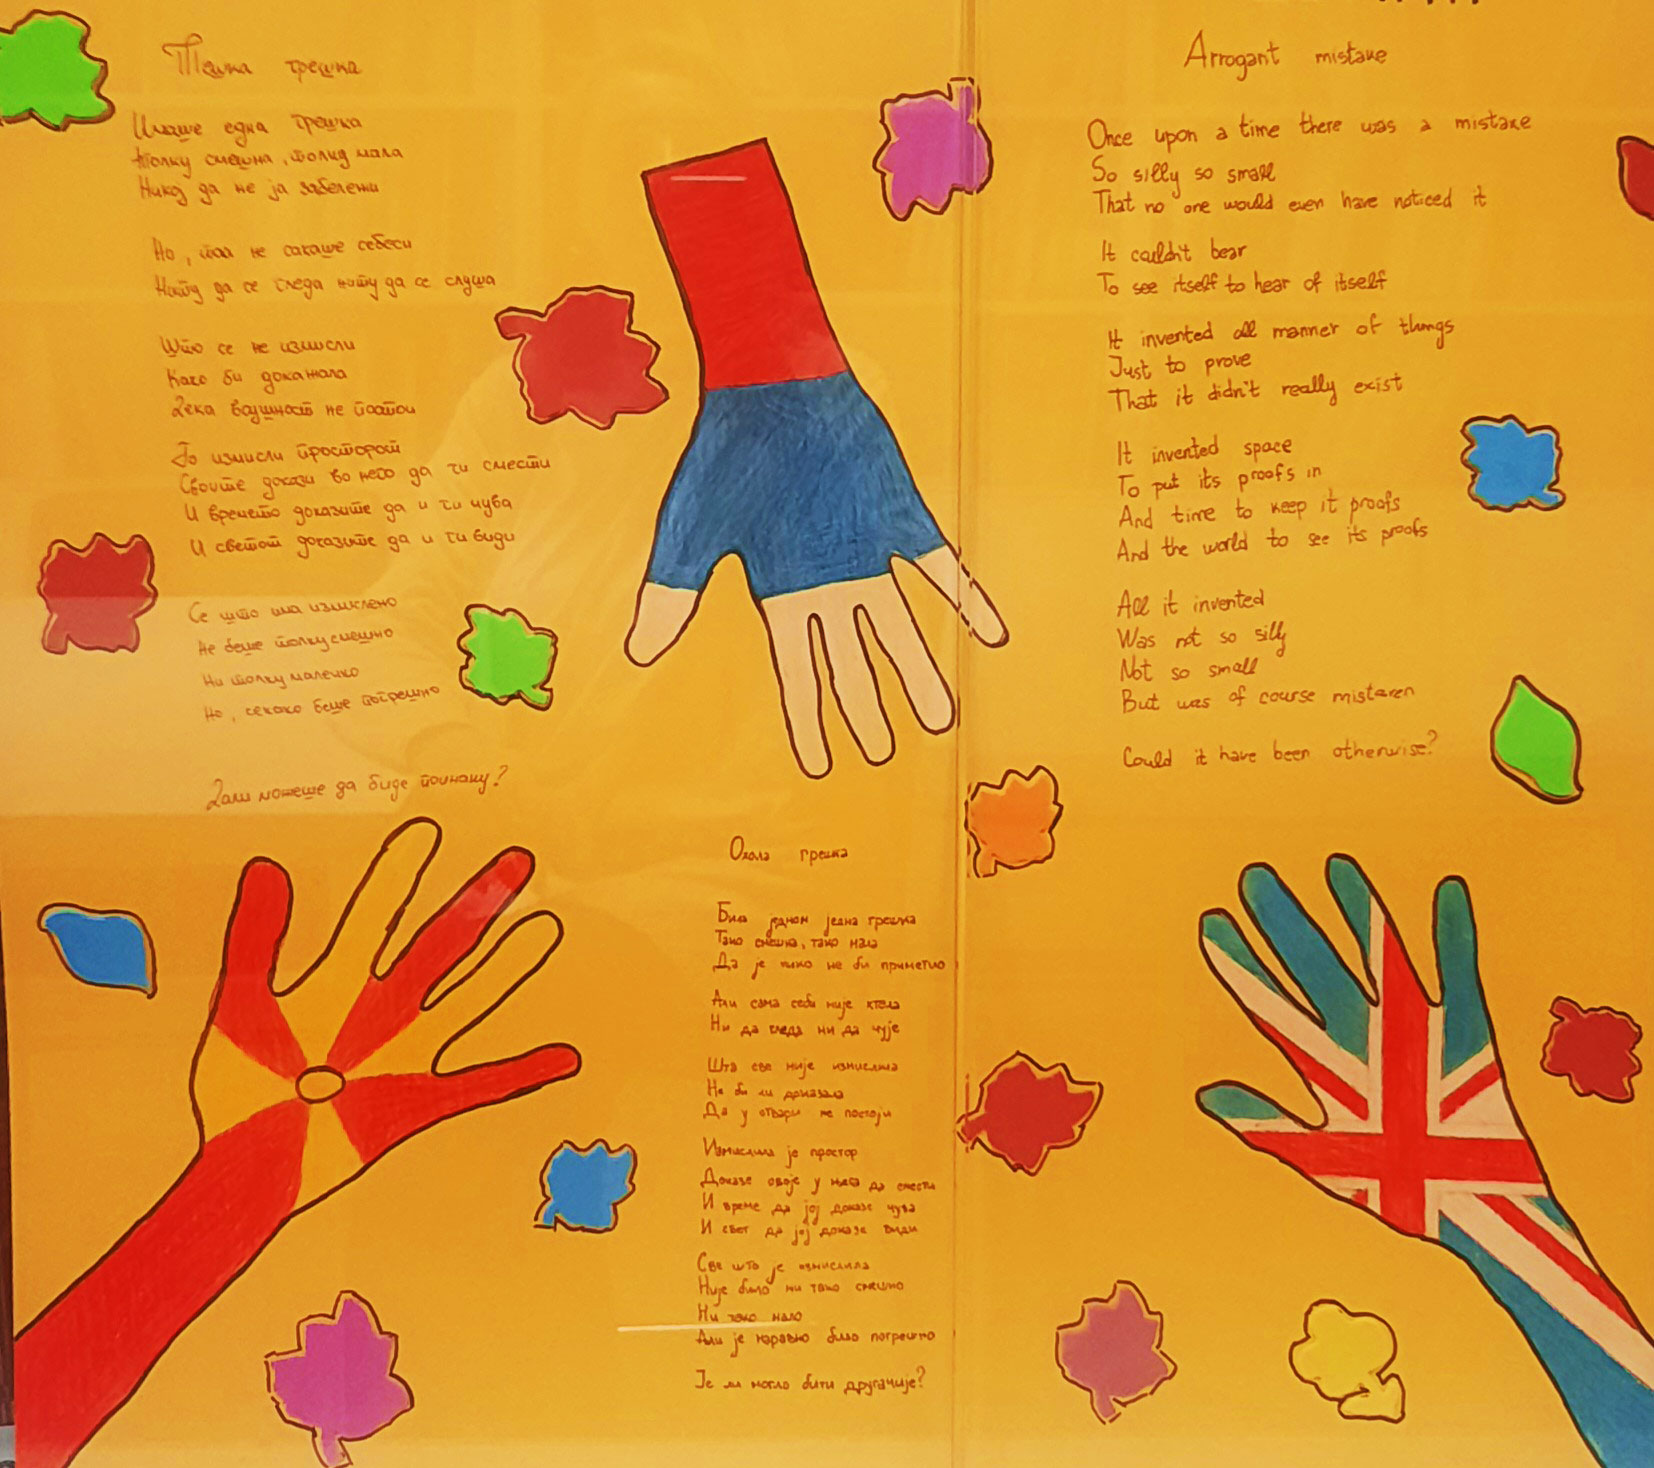 Тешка грешка
Имаше една грешка
толку смешна, толку мала
Никој да не ја забележи
Но, таа не сакаше себеси
Ниту да се гледа ниту да се слуша
Што се не измисли
Како би докажала
Дека всушност не постои
Го измисли просторот
Своите докази во него да ги смести
И времето доказите да и ги чува
И светот доказите да и ги види
Се што има измислено
Не беше толку смешно
Ни толку малечко
Но, секако беше погрешно
Дали можеше да биде поинаку?
Arrogant mistake
Once upon a time there was a mistake
So silly so small
That no one would even have noticed it
It couldn't bear
To see itself to hear of itself
It invented all manner of things
Just to prove
That it didn't really exist
It invented space
To put its proofs in
And time to keep it proofs
And the world to see its proofs
All it invented
Was not so silly
Not so small
But was of course mistaken
Could it have been otherwise?
Охола грешка
Била једном једна грешка
Тако смешна, тако мала
Да је нико не би приметио
Али сама себи није хтела
Ни да гледа ни да чује
Шта све није измислила
Не би ли доказала
Да у ствари не постоји
Измислила је простор
Доказе своје у њега да смести
И време да јој доказе чува
И свет да јој доказе види
Све што је измислила
Није било ни тако смешно
Ни тако мало
Али је наравно било погрешно
Је ли могло бити другачије?